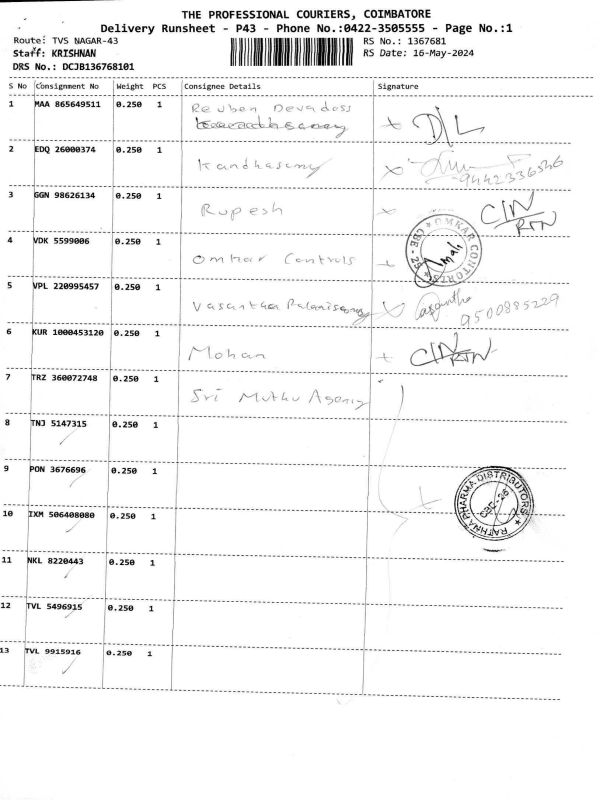 THE PROFESSIONAL COURIERS, COIMBATORE
Delivery Runsheet - P43 - Phone No.:0422-3505555 - Page No.:1
Route: TVS NAGAR-43 RS No.: 1367681
Staff: KRISHNAN RS Date: 16-May-2024
DRS No.: DCJB136768101
S No Consignment No Weight PCS Consignee Details Signature
1 MAA 865649511 0.250 1 Reuben Devadoss D/L
2 EDQ 26000374 0.250 1 Kandhasamy 9442336536
3 GGN 98626134 0.250 1 Rupesh CIN RTN
4 VDK 5599006 0.250 1 Omkar Controls OMKAR CONTORLS CBE - 25
5 VPL 220995457 0.250 1 Vasantha Palanisamy 9500885229
6 KUR 1000453120 0.250 1 Mohan CIN RTN
7 TRZ 360072748 0.250 1 Sri Muthu Agency
8 TNJ 5147315 0.250 1
9 PON 3676696 0.250 1 RATHNA PHARMA DISTRIBUTORS
10 IXM 506408080 0.250 1
11 NKL 8220443 0.250 1
12 TVL 5496915 0.250 1
13 TVL 9915916 0.250 1